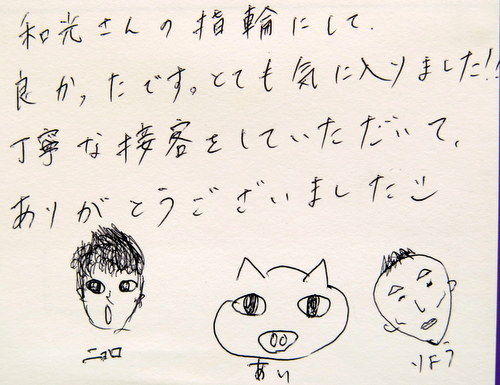 和光さんの指輪にして.
良かったです。とても気に入りました!!
丁寧な接客をしていただいて、
ありがとうございました
ニョロ
あい
ソドラ